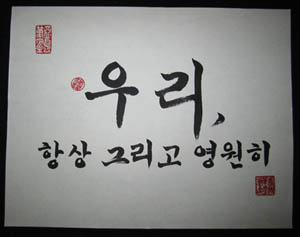 우리,
항상 그리고 영원히